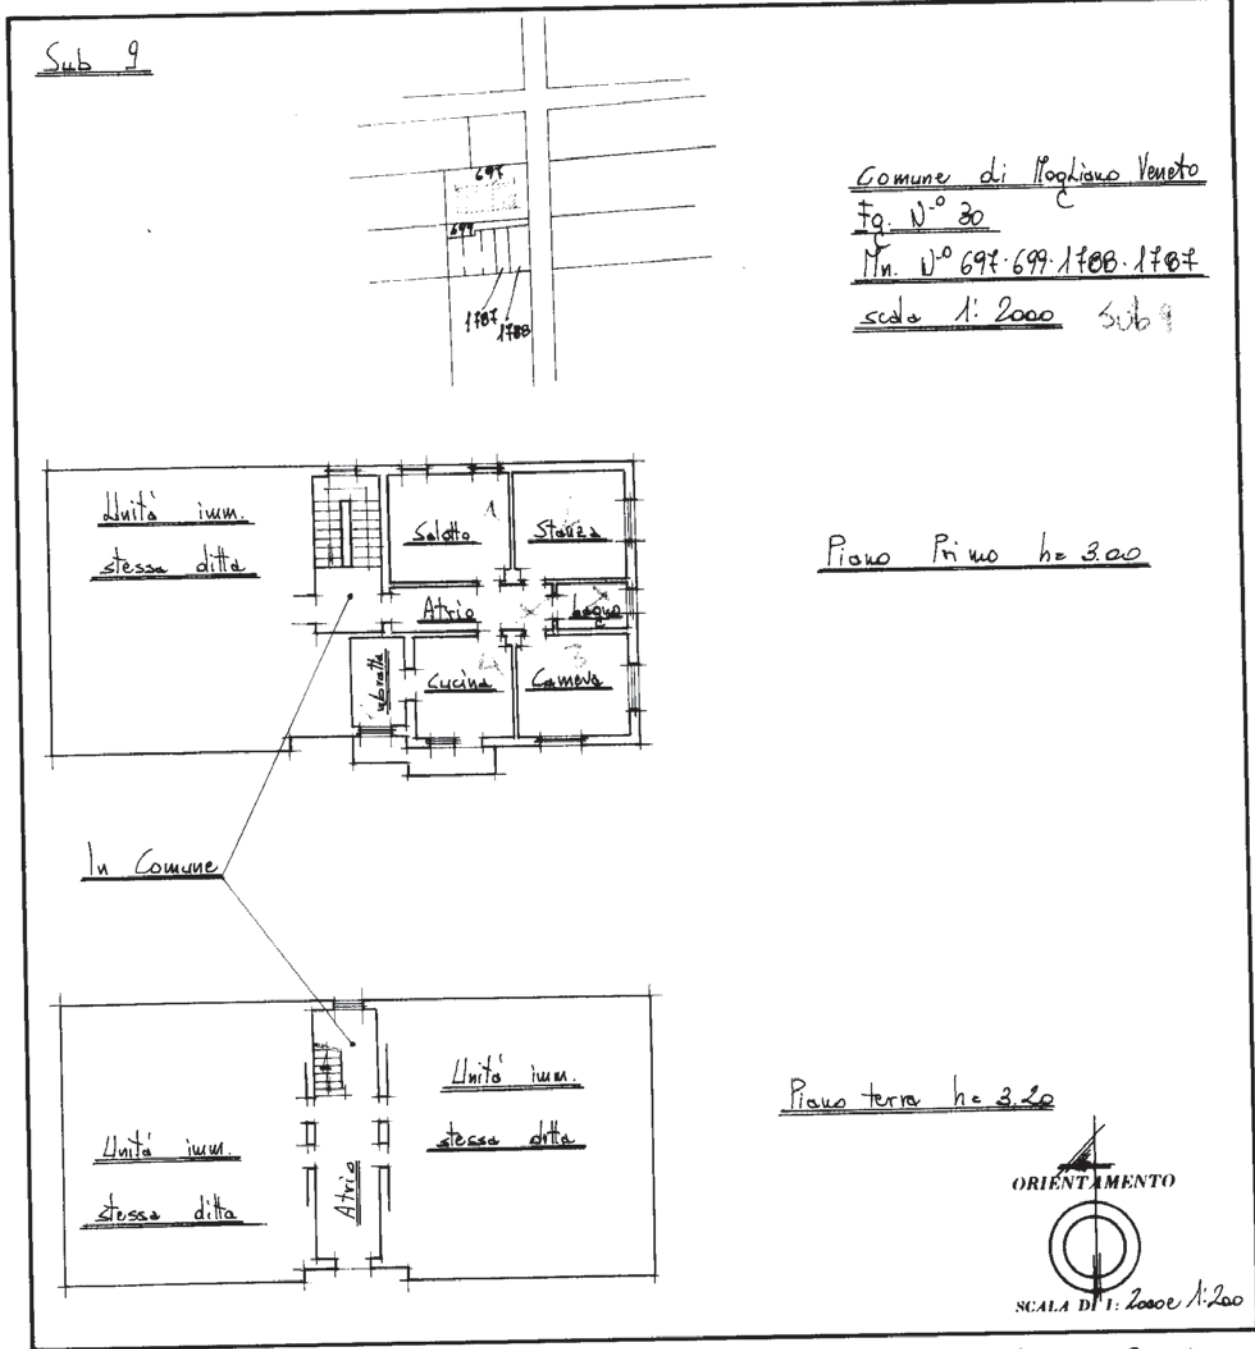 Sub 9
697
699
1787
1788
Comune di Mogliano Veneto
Fg. N.º 30
Mn. Nº 697-699-1788-1787
scala 1: 2000 Sub 9
Unitá imm.
stessa ditta
Salotto 1
Stanza
Atrio
bagno
Cucina 4
Camera 3
Piano Primo h= 3.00
In Comune
Unitá imm.
stessa ditta
Atrio
Unitá imm.
stessa ditta
Piano terra h= 3.20
ORIENTAMENTO
SCALA DI 1: 2000 e 1:200